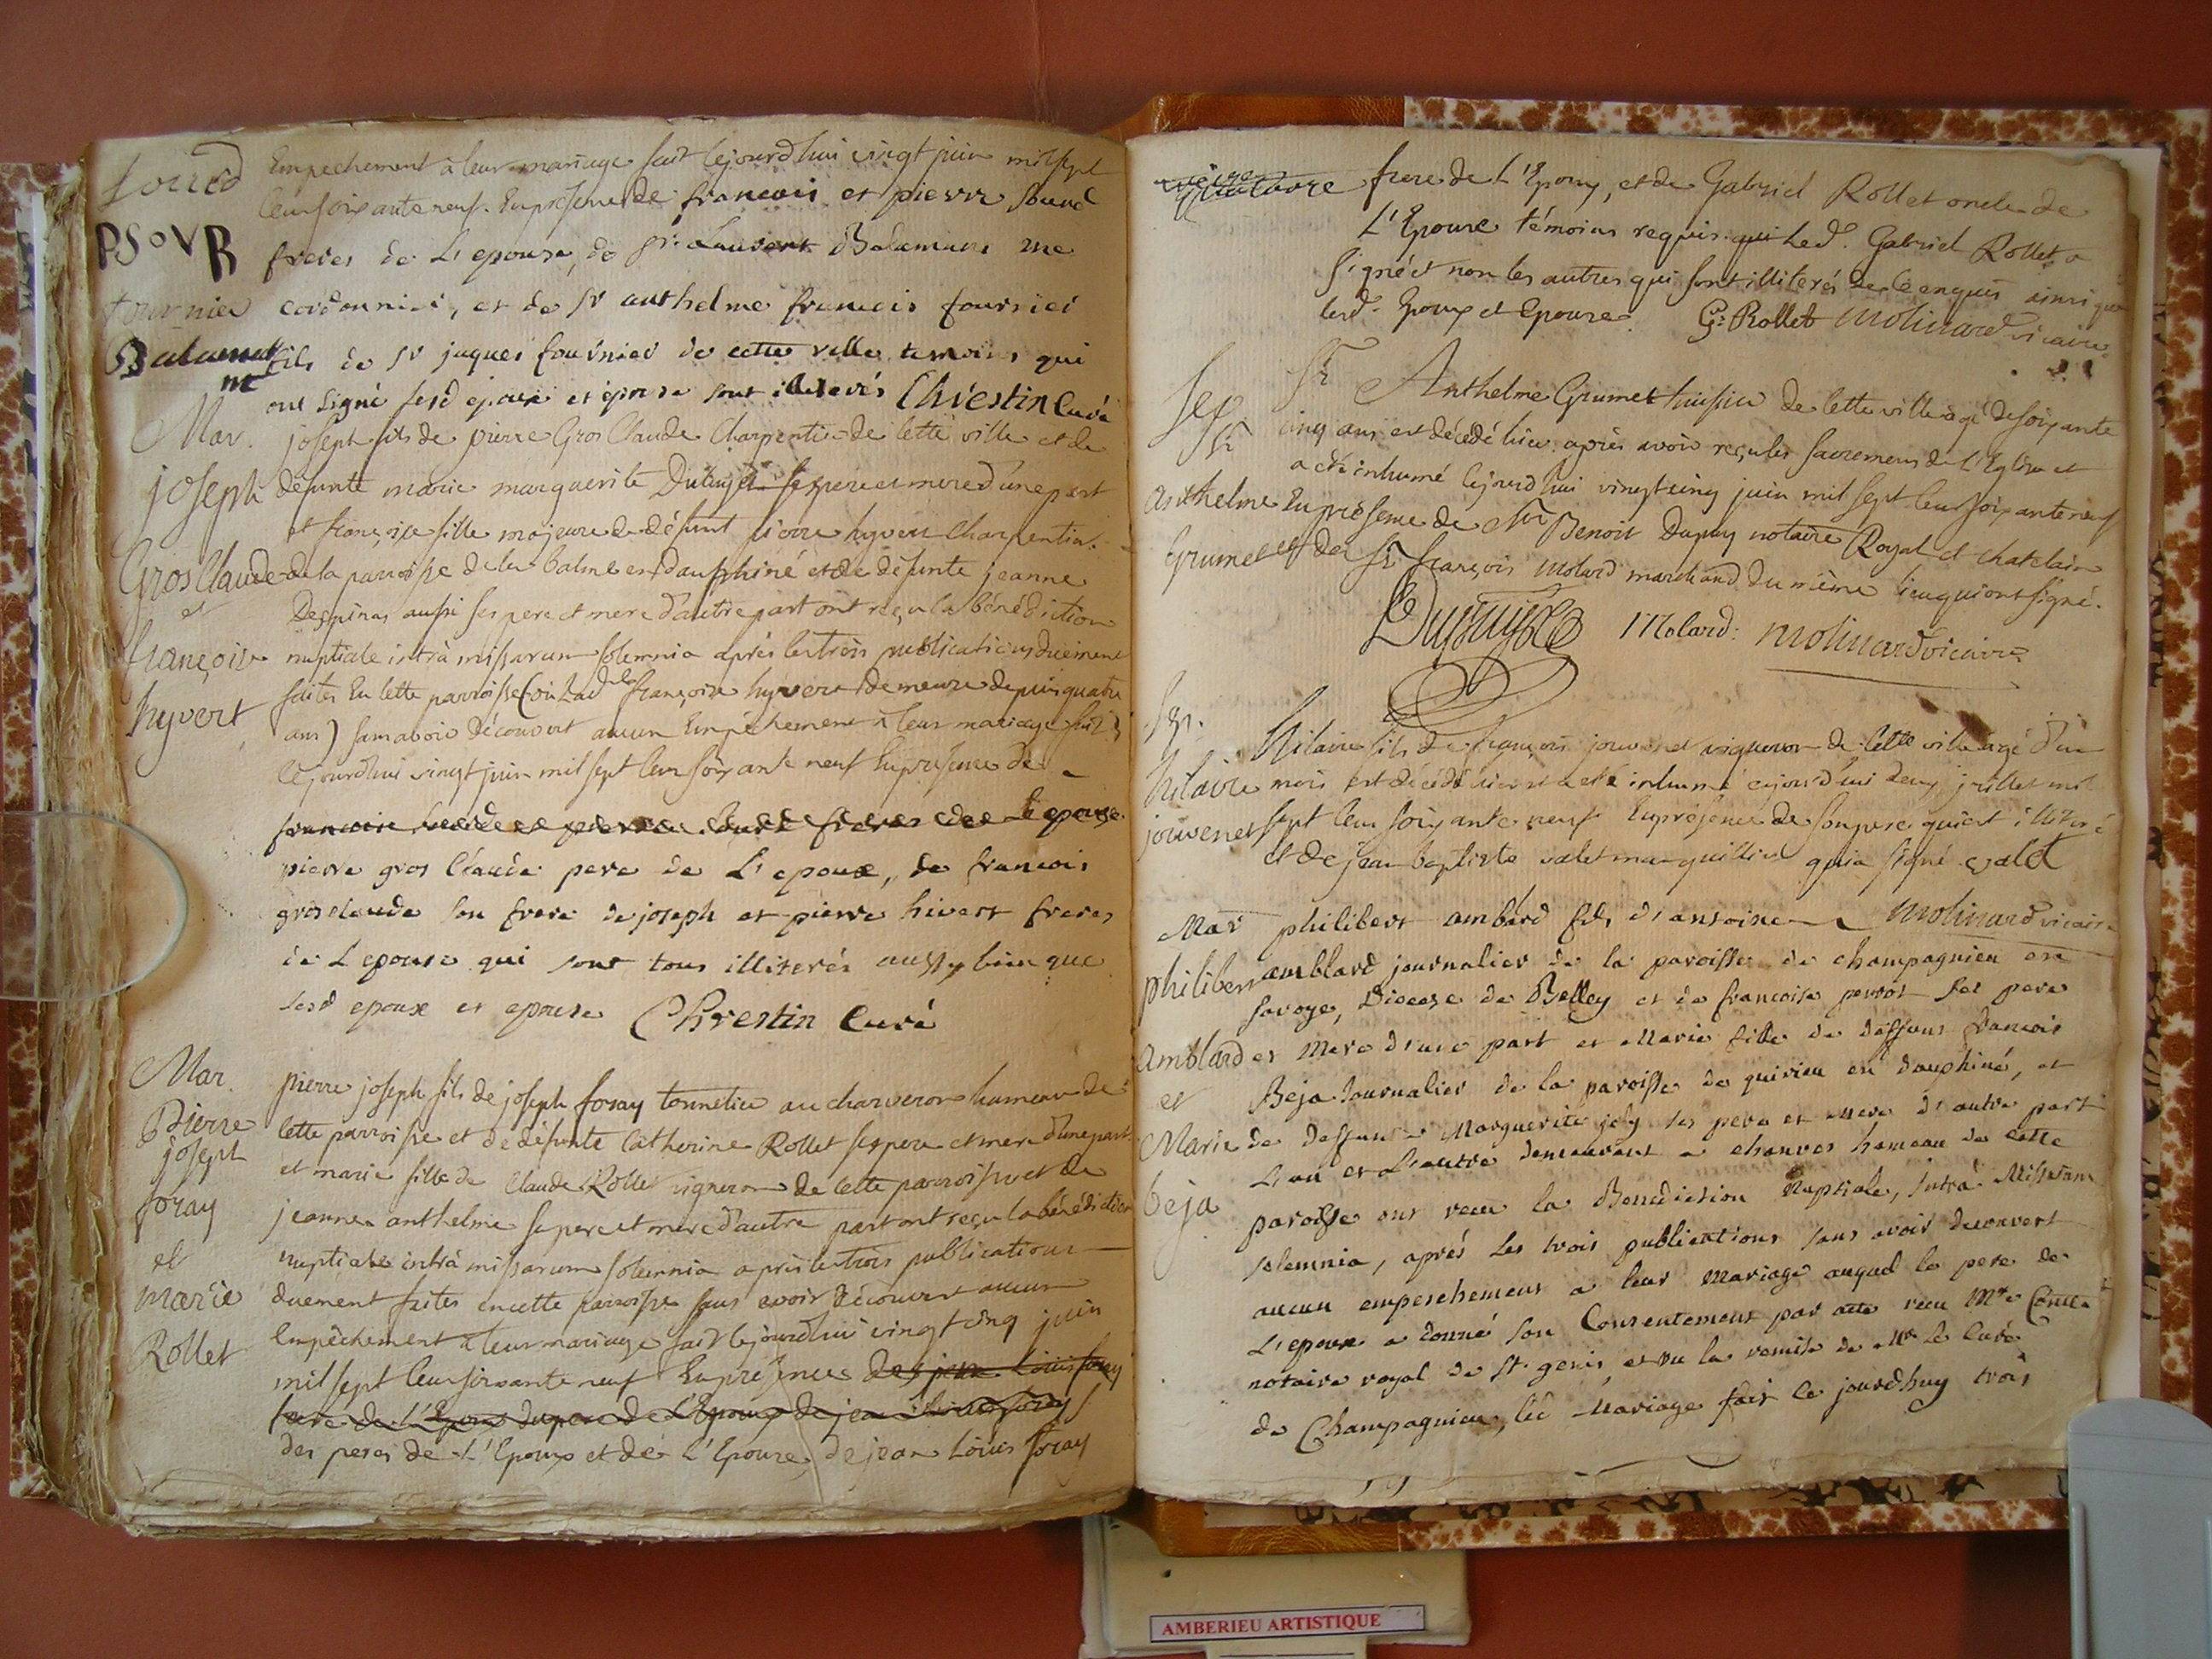 sourd
PSOVR
fournier
Balamant
Empechement a leur mariage fait cejourd'hui vingt juin mil sept
cent soixante neuf. En presence de francois et pierre sourd
freres de L'epouse, de Sr. Laurent Balamant me
cordonnier, et de Sr anthelme francois fournier
fils de Sr jaques fournier de cette ville temoins qui
ont signé lesd epoux et epouse sont illiterés Chrestin Curé
Mar.
joseph
Gros Claude
et
françoise
hyvert
joseph fils de pierre Gros Claude Charpentier de cette ville et de
défunte marie marguerite ses pere et mere d'une part
et françoise fille majeure de défunt pierre hyvert Charpentier
de la parroisse de la balme en dauphiné et de défunte jeanne
Despinas aussi ses pere et mere d'autre part ont reçu la bénédiction
nuptiale intrà missarum solemnia après les trois publications duement
faites En cette parroisse (où Lad. françoise hyvert demeure depuis quatre
ans) sans avoir découvert aucun Empêchement à leur mariage fait
cejourd'hui vingt juin mil sept cent soixante neuf En presence de
francois sourd et pierre sourd freres de L'epouse
pierre gros Claude pere de L'epoux, de francois
grosclaude son frere de joseph et pierre hivert freres
de L'epouse qui sont tous illiterés aussy bien que
lesd epoux et epouse Chrestin Curé
Mar.
Pierre
joseph
foray
et
marie
Rollet
pierre joseph fils de joseph foray tonnelier au charveron hameau de
cette parroisse et de défunte Catherine Rollet ses pere et mere d'une part
et marie fille de Claude Rollet vigneron de cette parroisse et de
jeanne anthelme ses pere et mere d'autre part ont reçu la bénédiction
nuptiale intrà missarum solemnia après les trois publications
duement faites en cette parroisse sans avoir découvert aucun
Empêchement à leur mariage fait cejourd'hui vingt cinq juin
mil sept cent soixante neuf En présence de jean Louis foray
frere de l'Epoux du pere de L'Epoux de jean Louis foray
des peres de L'Epoux et de L'Epouse, de jean Louis foray
frere de L'Epoux, et de Gabriel Rollet oncle de
L'Epouse témoins requis qui Led. Gabriel Rollet a
signé et non les autres qui sont illiterés de ce enquis ainsi que
lesd. Epoux et Epouse. G: Rollet Molinard vicaire
Sep.
Sr
Anthelme
Grumet
Sr Anthelme Grumet huissier de cette ville agé de soixante
cinq ans est décédé hier après avoir reçu les sacremens de L'Eglise et
a été inhumé cejourd'hui vingt cinq juin mil sept cent soixante neuf
En présence de Me Benoit Dupuy notaire Royal et chatelain
et de Sr françois Molard marchand du même lieu qui ont signé.
Dupuy Molard: Molinard vicaire
Sep.
hilaire
jouvenet
hilaire fils de françois jouvenet vigneron de cette ville agé d'un
mois est décédé hier et a été inhumé cejourd'hui deux juillet mil
sept cent soixante neuf En présence de son pere qui est illiteré
et de jean baptiste valet marguillier qui a signé valet
Molinard vicaire
Mar
philibert
Amblard
et
Marie
beja
philibert ambard fils d'antoine
amblard journalier de la paroisse de champagnieu en
savoye, Diocese de Belley et de francoise perrot ses pere
et Mere d'une part et Marie fille de deffunt francois
Beja Journalier de la paroisse de quirieu en dauphiné, et
de deffunte Marguerite joly ses pere et mere d'autre part
L'un et L'autre demeurant a chauves hameau de cette
paroisse ont recu la Benediction Nuptiale, Intrà Missarum
solemnia, après Les trois publications sans avoir decouvert
aucun empeschement a leur Mariage auquel le pere de
L'epoux a donné son Consentement par acte recu Mre Comte
notaire royal de St. genis, et vu la remise de Mr le Curé
de Champagnieu, led Mariage fait le jourdhuy trois
AMBERIEU ARTISTIQUE